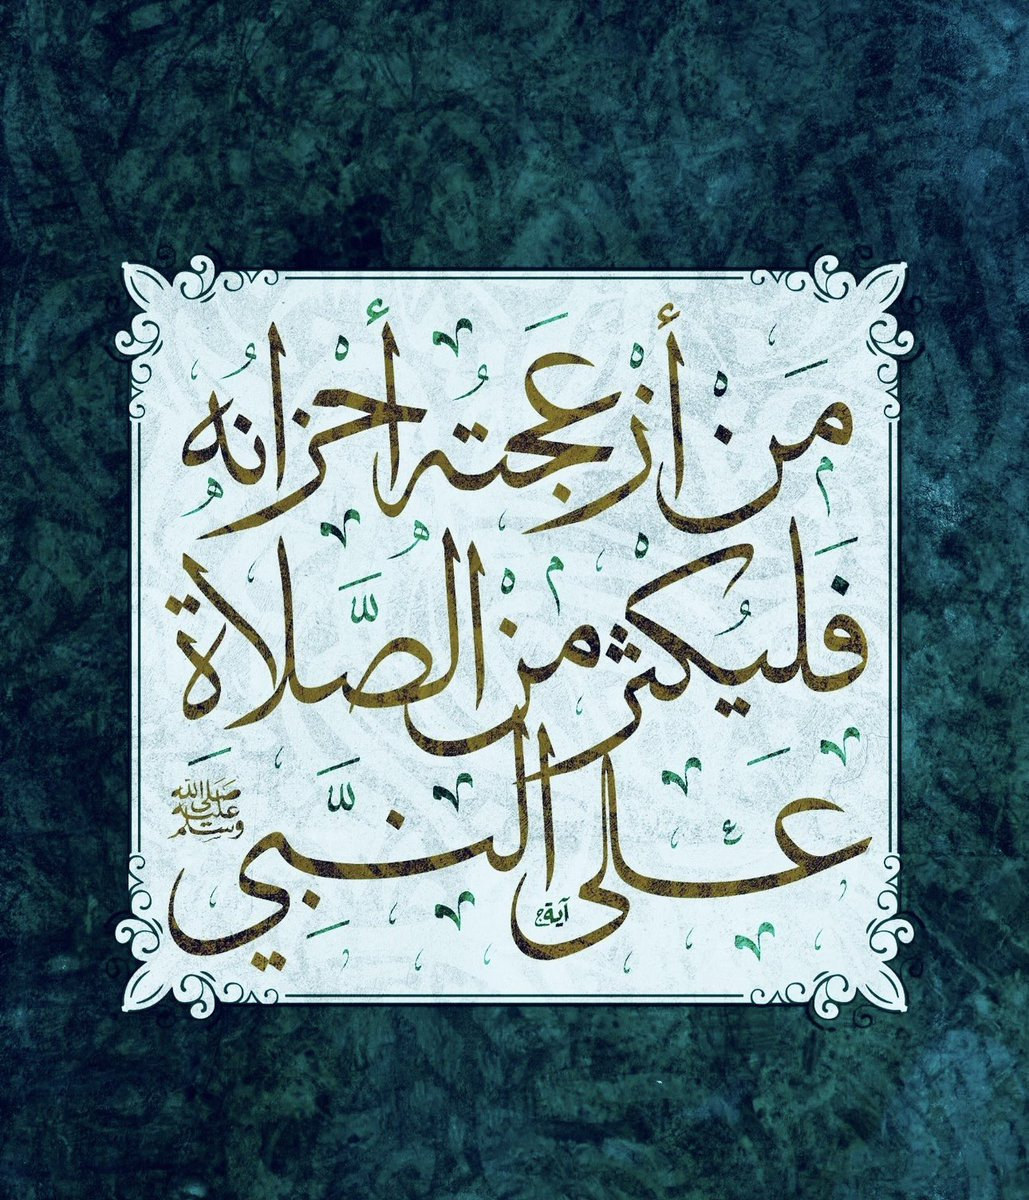 مَنْ أَزْعَجَتْهُ أَحْزَانُهُ
فَلْيُكْثِرْ مِنَ الصَّلَاةِ
عَلَى النَّبِيِّ
صلى الله عليه وسلم
آية ج